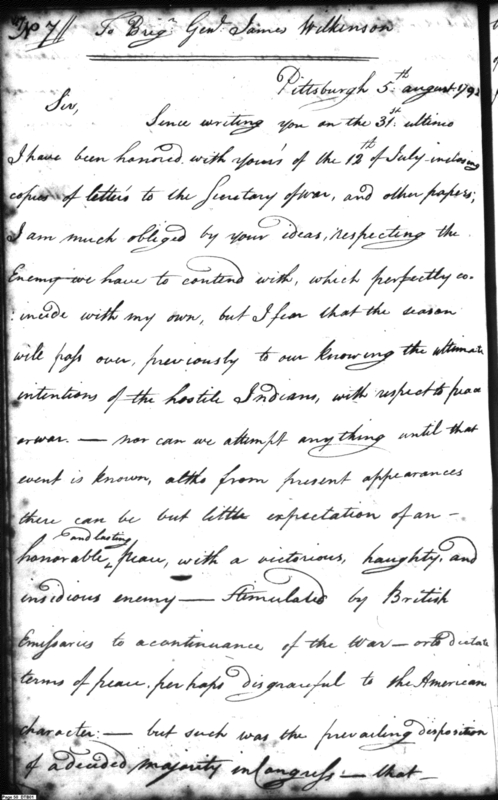 No 7// To Brigr. Genl. James Wilkinson
Pittsburgh 5th. august 1792
Sir,
Since writing you on the 31st. ultimo
I have been honored with yours of the 12th of July inclosing
copies of letter's to the Secretary of war, and other papers;
I am much obliged by your ideas, respecting the
Enemy we have to contend with, which perfectly co-
:incide with my own, but I fear that the season
will pass over, previously to our knowing the ultimate
intentions of the hostile Indians, with respect to peace
or war. — nor can we attempt any thing until that
event is known, altho from present appearances
there can be but little expectation of an -
and lasting
honorable ^ peace, with a victorious, haughty, and
insidious enemy — Stimulated by British
Emissaries to a continuance of the War — or to dictate
terms of peace. perhaps disgraceful to the American
character: — but such was the prevailing disposition
of a decided majority in Congress — that —